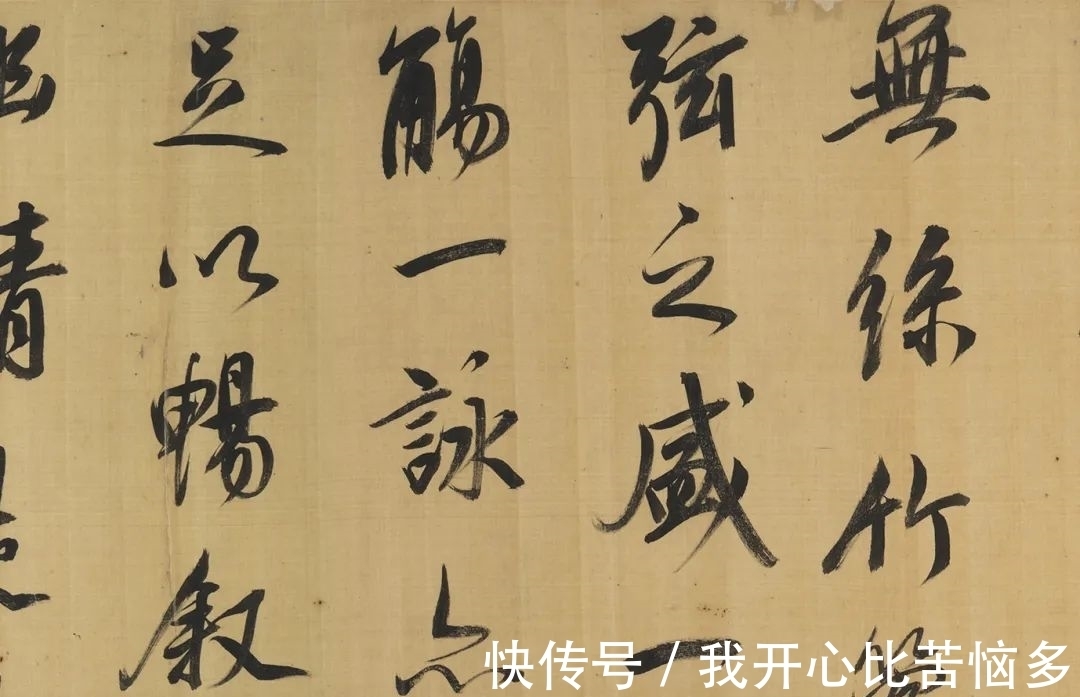 無絲竹
弦之盛一
觴一詠亦
足以暢敘
快传号 / 我开心比苦恼多